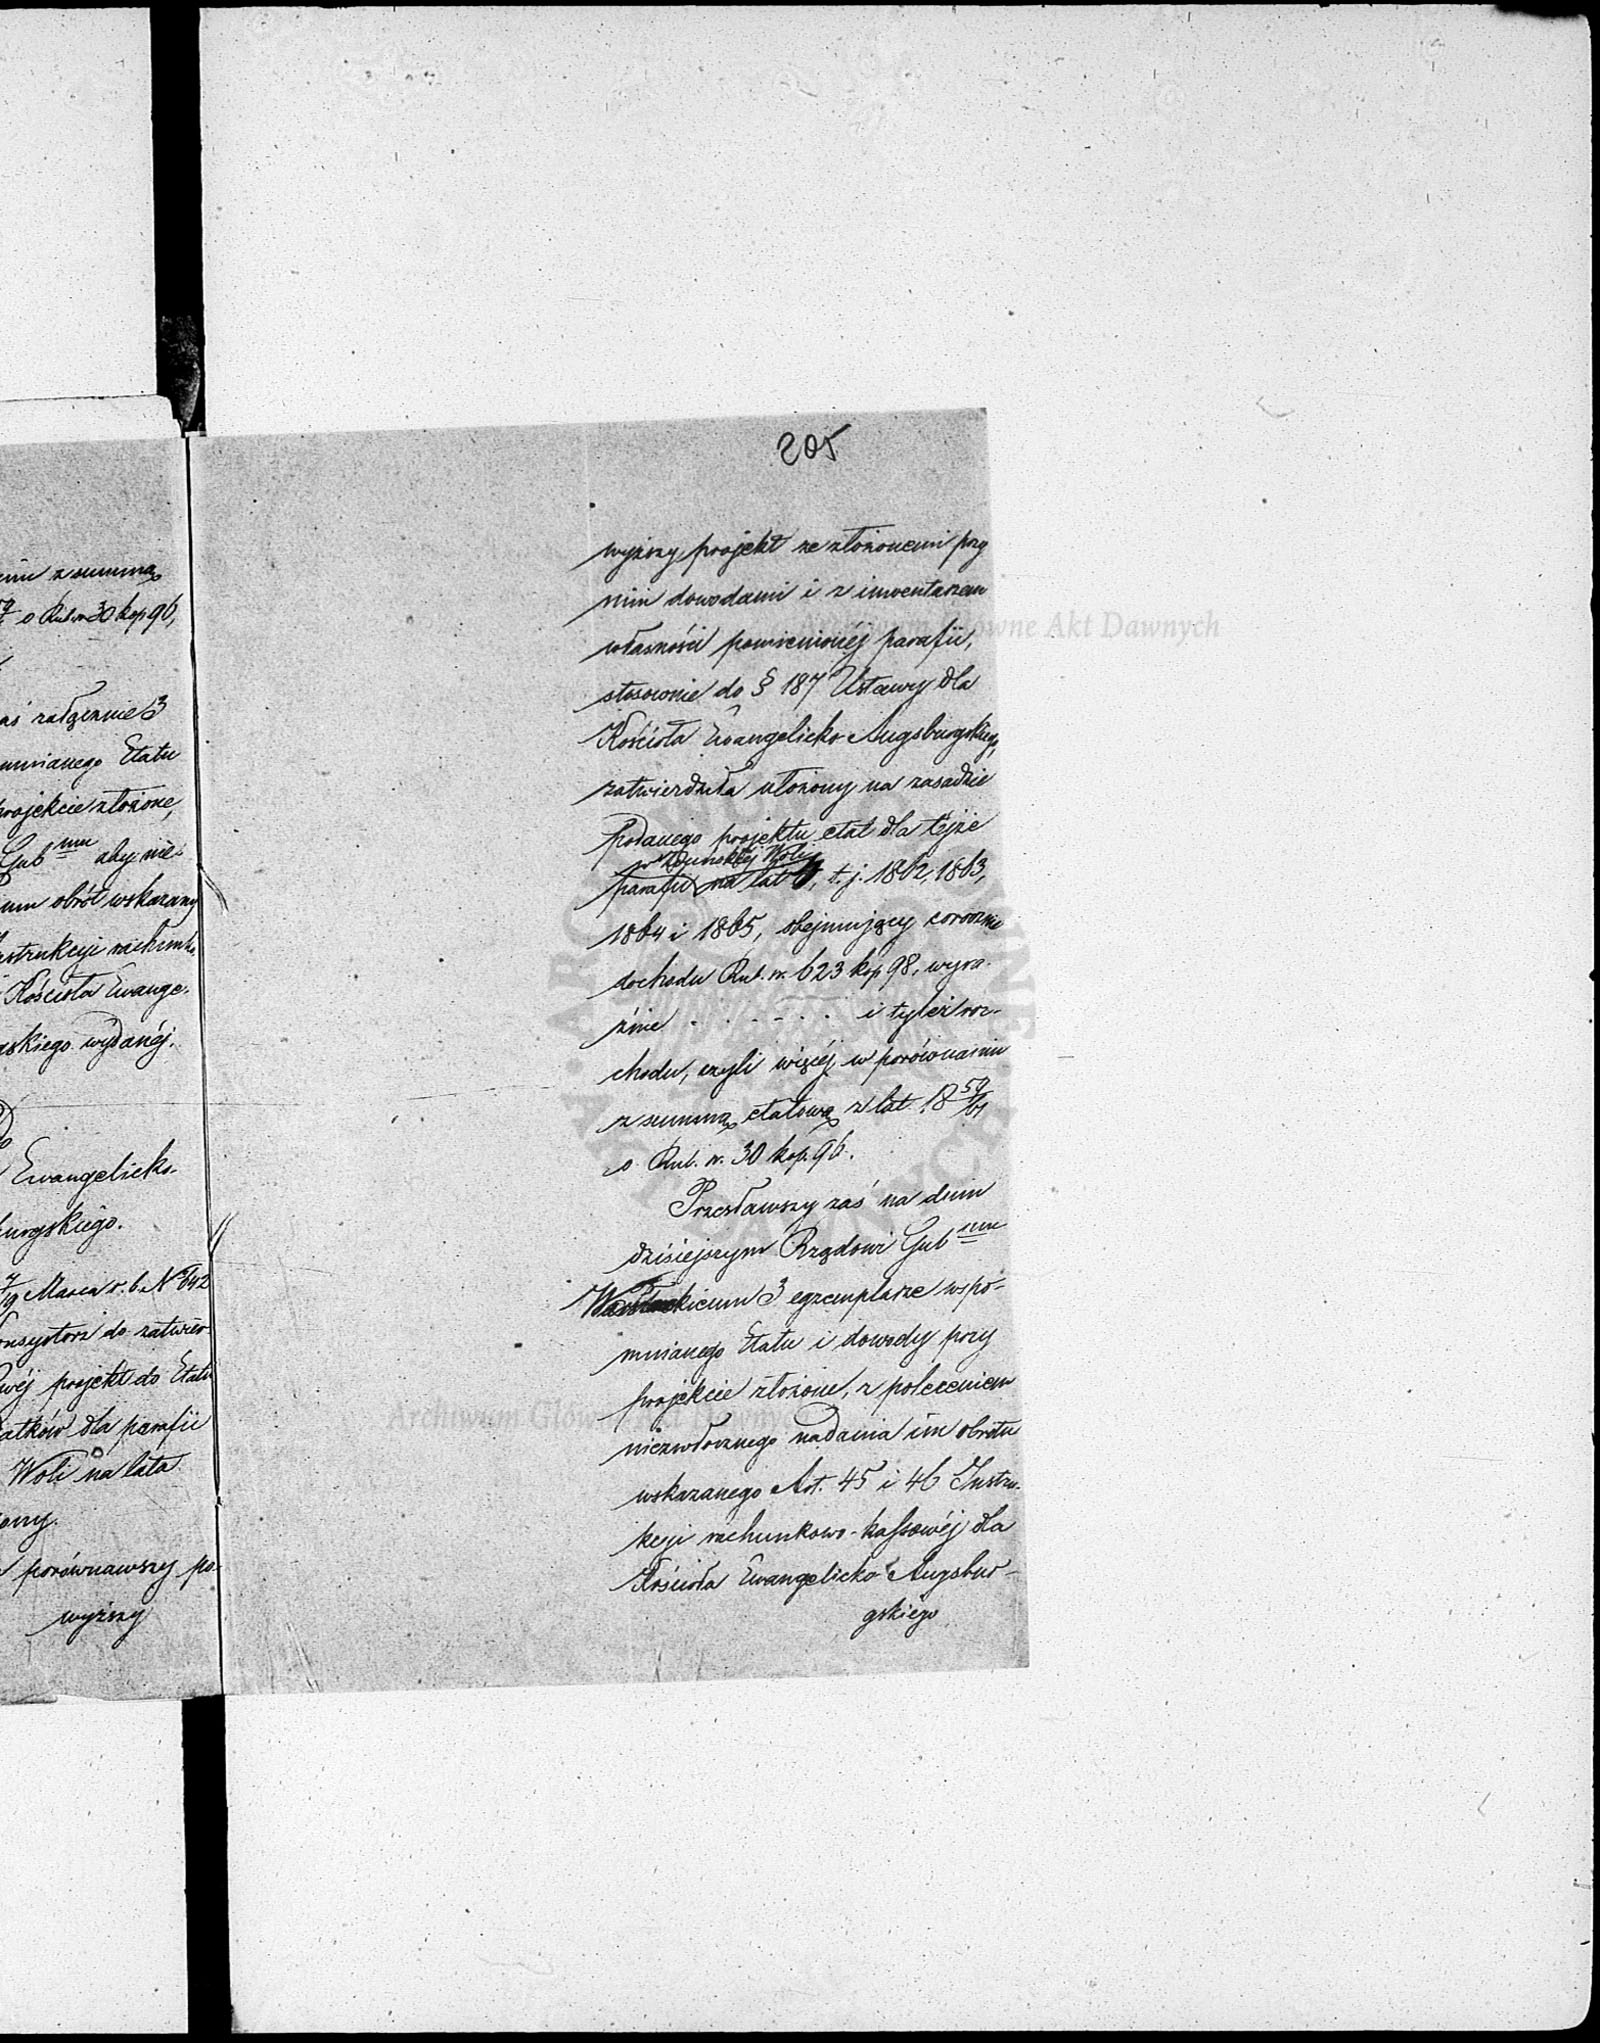 nim z summą
59 o Rub. sr. 30 kop 96,
aś załączenie 3
mnianego Etatu
projekcie złożone,
Gub nmu aby nie-
um obrót wskazany
nstrukcyi rachunko,
Kościoła Ewange-
skiego wydanéj.
Ewangelicko-
burgskiego.
7/19 Marca r. b. No 642
onsystorz do zatwier-
wéj projekt do Etatu
atków dla parafii
Woli na lata
ony.
porównawszy po-
wyższy
205
wyższy projekt ze złożonemi przy
nim dowodami i z inwentarzem
własności pomienionéj parafii,
stosownie do § 187 Ustawy dla
Kościoła Ewangelicko Augsburgskiego,
zatwierdziła ułożony na zasadzie
podanego projektu etat dla tejże
w Zduńskiéj Woli
parafii na lat 4, t. j. 1862, 1863,
1864 i 1865, obejmujący corocznie
dochodu Rub. sr. 623 kop 98, wyra-
źnie . . . . . . i tyleż roz-
chodu, czyli więcéj, w porównaniu
z summą etatową z lat 18 59/61
o Rub. sr. 30 kop. 96.
Przesławszy zaś na dniu
dzisiejszym Rządowi Gub nmu
Warszawskiemu 3 egzemplarze wspo-
mnianego Etatu i dowody przy
projekcie złożone, z poleceniem
niezwłocznego nadania im obrotu
wskazanego Art. 45 i 46 Instru-
kcyi rachunkowo-kassowéj dla
Kościoła Ewangelicko Augsbur-
gskiego
Archiwum Główne Akt Dawnych
Archiwum Główne Akt Dawnych